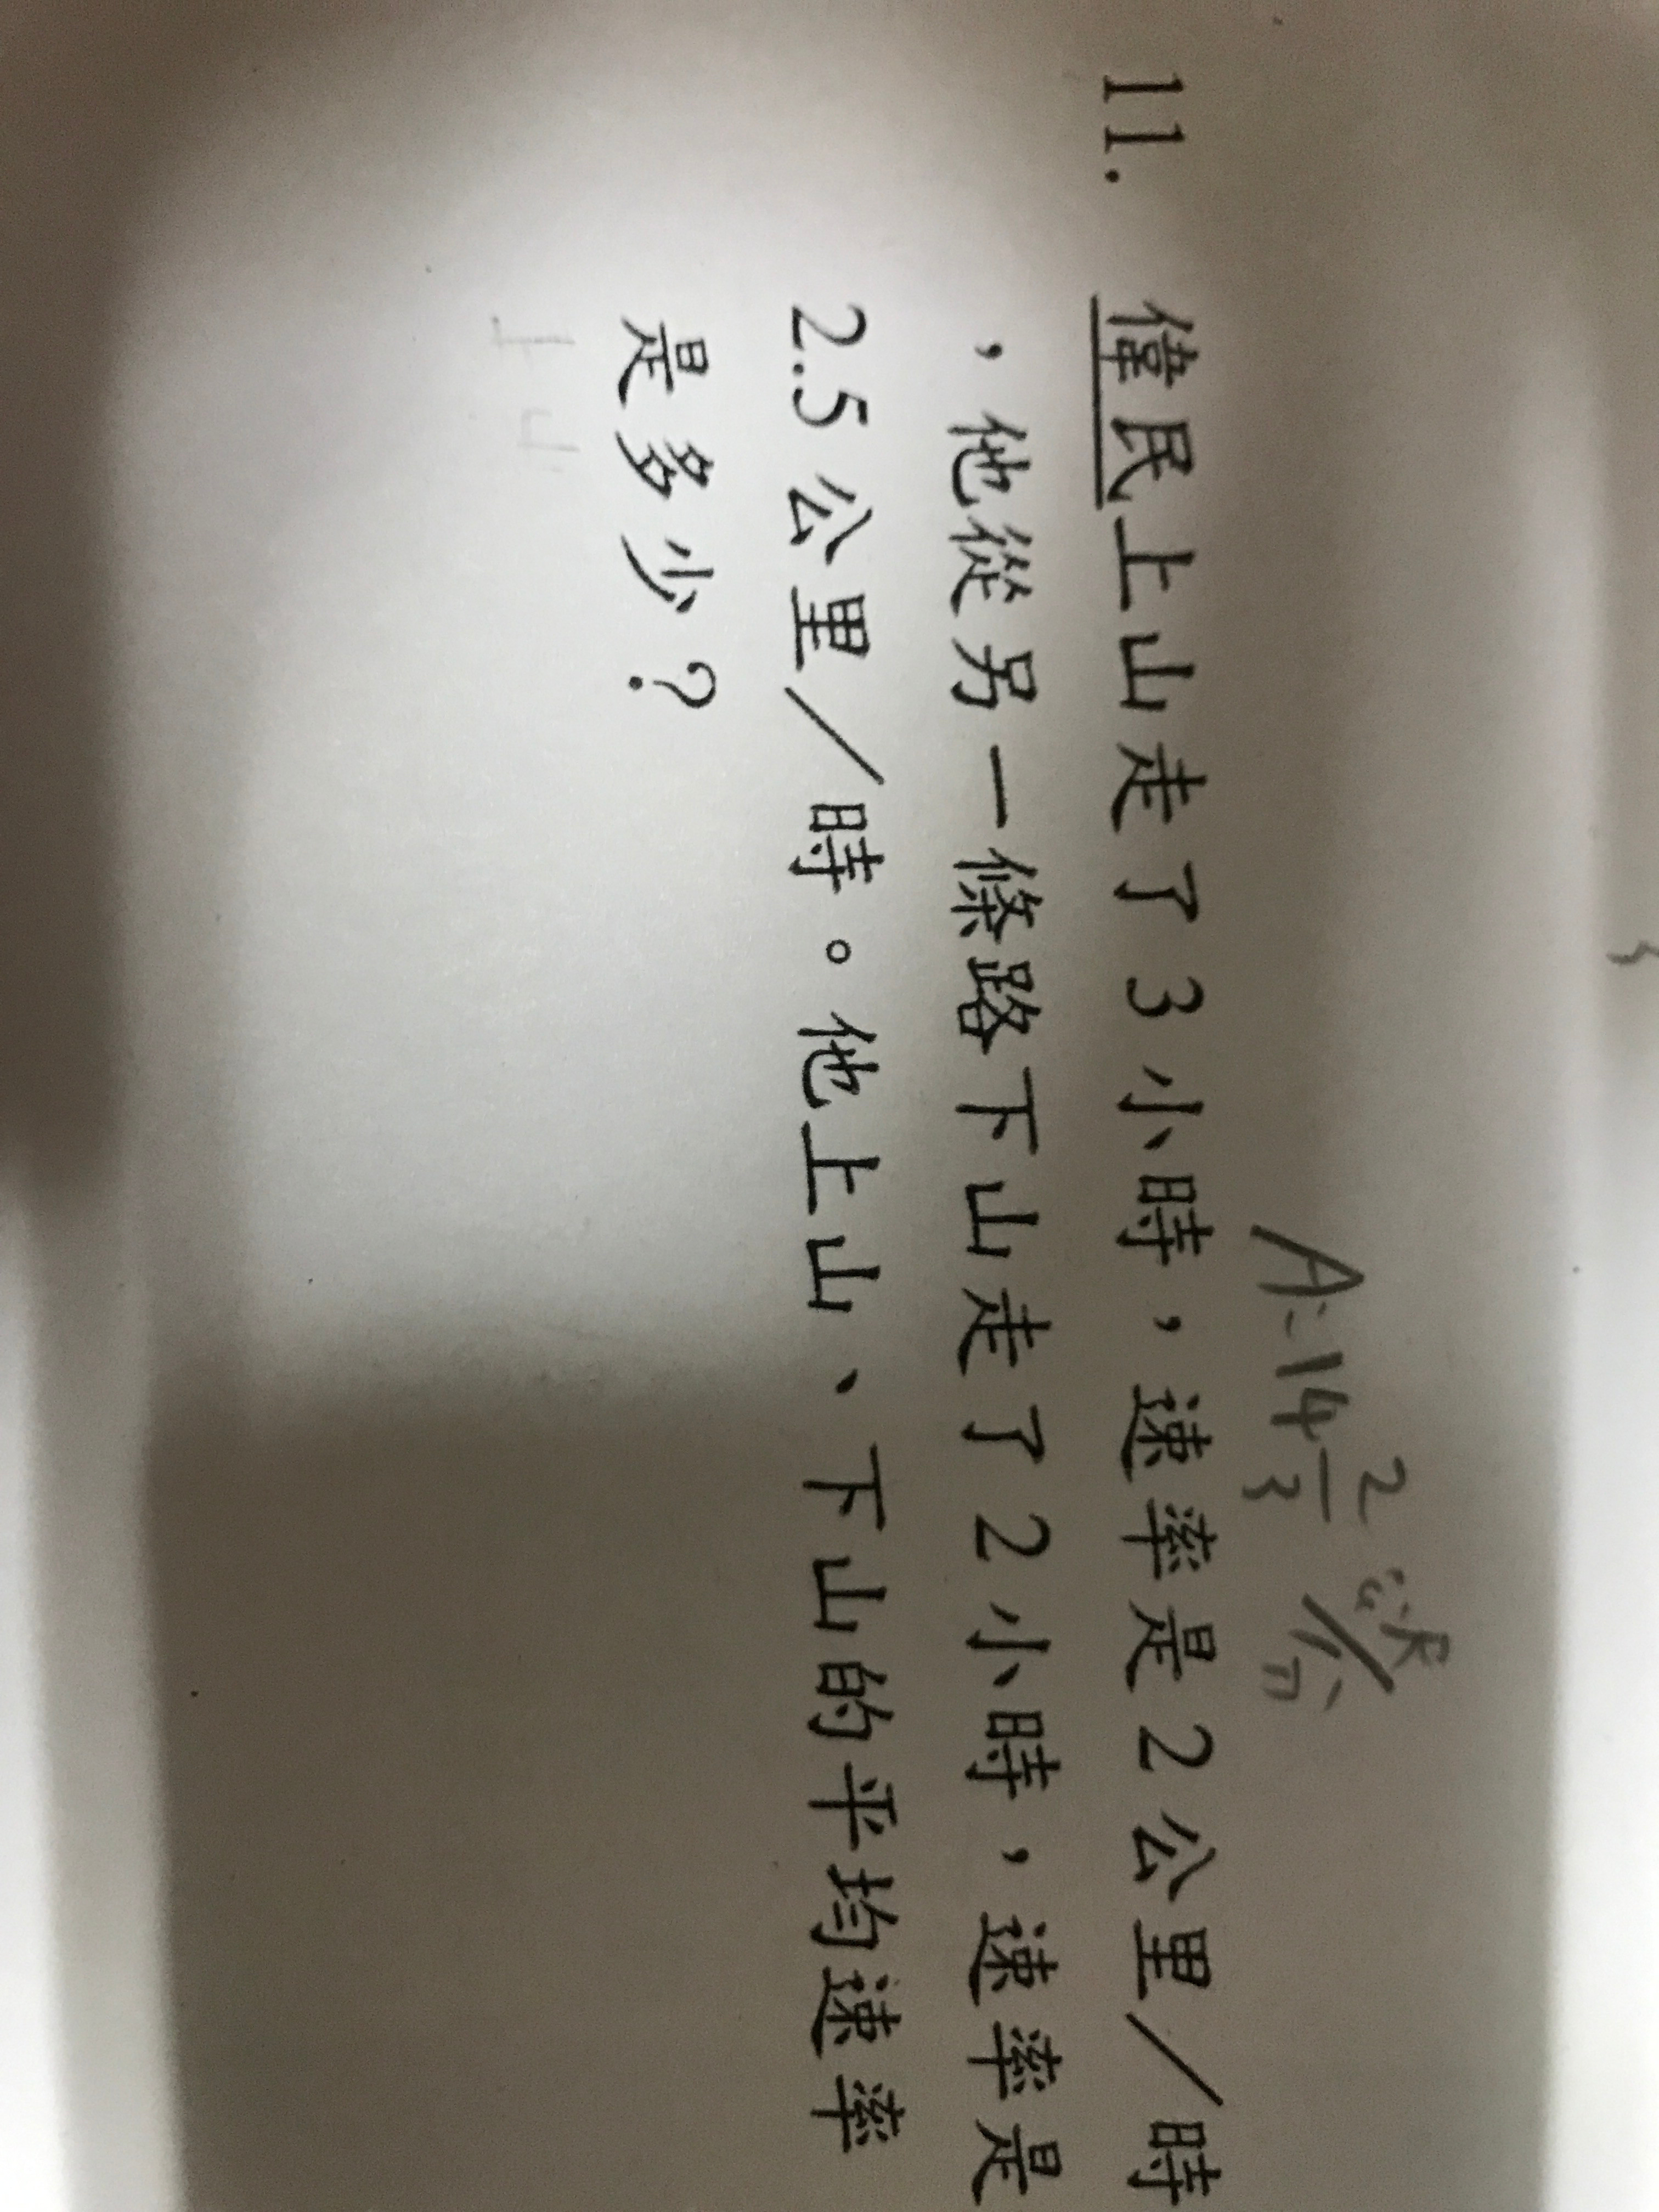 A:14 2/3
11. 偉民上山走了3小時，速率是2公里／時
，他從另一條路下山走了2小時，速率是
2.5公里／時。他上山、下山的平均速率
是多少？
上山